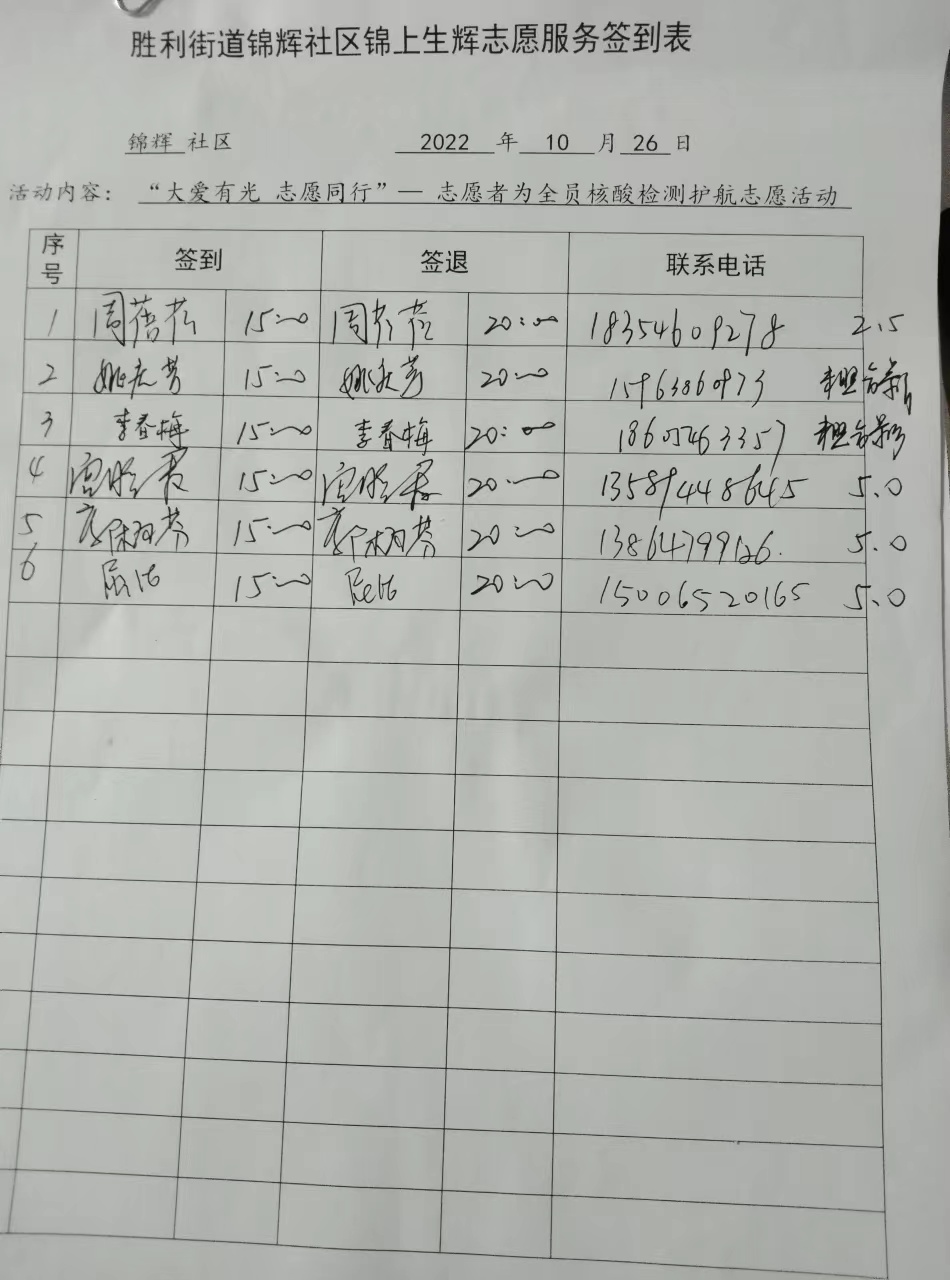 胜利街道锦辉社区锦上生辉志愿服务签到表
锦辉 社区 2022 年 10 月 26 日
活动内容： “大爱有光 志愿同行”— 志愿者为全员核酸检测护航志愿活动
序号 签到 签退 联系电话
1 周蓓蓓 15:00 周蓓蓓 20:00 18354609278 2.5
2 15:00 20:00
3 李春梅 15:00 李春梅 20:00 18605463357
4 15:00 20:00 13589448645 5.0
5 15:00 20:00 5.0
6 15:00 20:00 15006520165 5.0